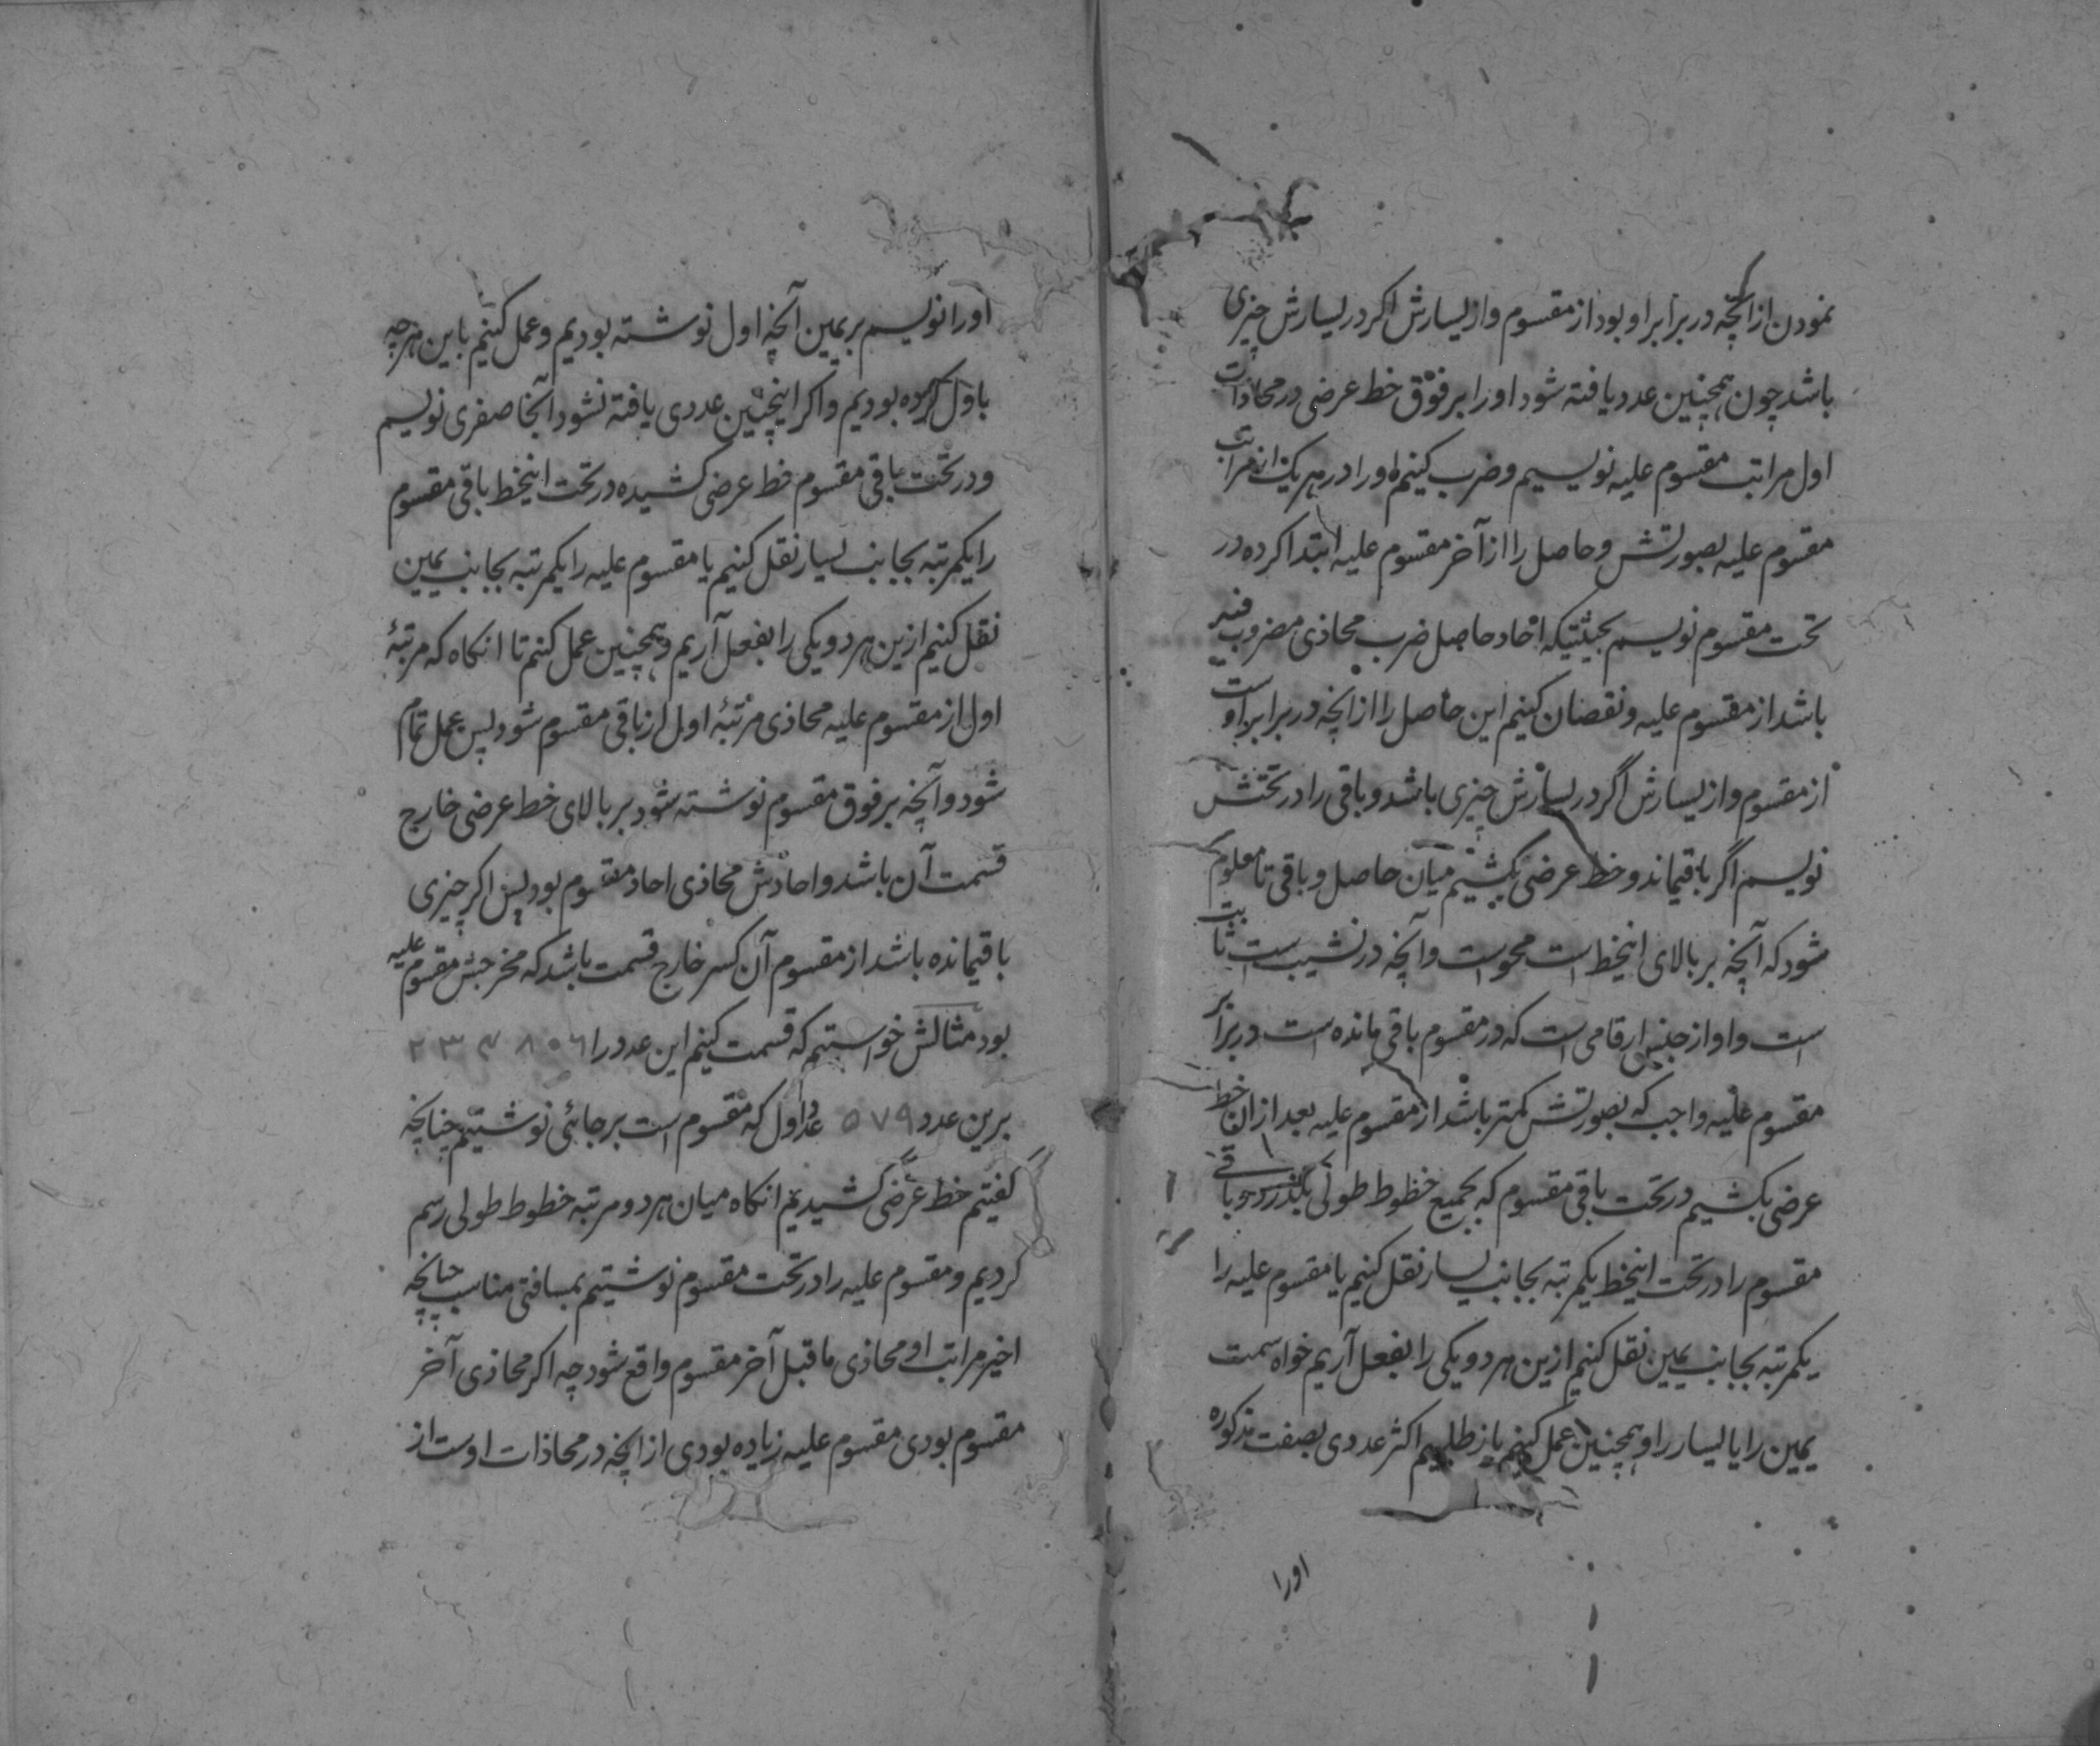 نمودن از آنچه در برابر او بود از مقسوم و از یسارش اگر در یسارش چیزی
باشد چون همچنین عدد یافته شود او را بر فوق خط عرضی در محاذات
اول مراتب مقسوم علیه نویسیم و ضرب کنیم او را در هر یک از مراتب
مقسوم علیه بصورتش و حاصل را از آخر مقسوم علیه ابتدا کرده در
تحت مقسوم نویسم بحیثیتیکه احاد حاصل ضرب محاذی مضروب فیه
باشد از مقسوم علیه و نقصان کنیم این حاصل را از انچه در برابر او است
از مقسوم و از یسارش اگر در یسارش چیزی باشد و باقی را در تحتش
نویسم اگر باقیماند و خط عرضی بکشیم میان حاصل و باقی تا معلوم
شود که آنچه بر بالای اینخط است محو است و آنچه در نشیب است ثابت
است و او از جنس ارقامی است که در مقسوم باقی مانده است در برابر
مقسوم علیه واجب که بصورتش کمتر باشد از مقسوم علیه بعد از ان خط
عرضی بکشیم در تحت باقی مقسوم که بجمیع خطوط طولی بگذرد و باقی
مقسوم را در تحت اینخط یکمرتبه بجانب یسار نقل کنیم یا مقسوم علیه را
یکمرتبه بجانب یمین نقل کنیم ازین هر دو یکی را بفعل آریم خواه سمت
یمین را یا یسار را و همچنین عمل کنیم باز طلبیم اکثر عددی بصفت مذکوره
اورا
اورا نویسم بر یمین آنچه اول نوشته بودیم و عمل کنیم باین هرچه
باول کرده بودیم و اکر اینچنین عددی یافته نشود آنجا صفری نویسم
و در تحت باقی مقسوم خط عرضی کشیده در تحت اینخط باقی مقسوم
را یکمرتبه بجانب یسار نقل کنیم یا مقسوم علیه را یکمرتبه بجانب یمین
نقل کنیم ازین هر دو یکی را بفعل آریم و همچنین عمل کنم تا انکاه که مرتبهٔ
اول از مقسوم علیه محاذی مرتبهٔ اول از باقی مقسوم شود پس عمل تمام
شود و آنچه بر فوق مقسوم نوشته شود بر بالای خط عرضی خارج
قسمت آن باشد و احادش محاذی احاد مقسوم بود پس اکر چیزی
باقیمانده باشد از مقسوم آن کسر خارج قسمت باشد که مخرجش مقسوم علیه
بود مثالش خواستیم که قسمت کنیم این عدد را ۲۳۴۸۵۶
برین عدد ۵۷۹ عدد اول که مقسوم است بر جائی نوشتیم چنانچه
کفتیم خط عرضی کشیدیم انکاه میان هر دو مرتبه خطوط طولی رسم
کردیم و مقسوم علیه را در تحت مقسوم نوشتیم بمسافتی مناسب چنانچه
اخیر مراتب او محاذی ماقبل آخر مقسوم واقع شود چه اکر محاذی آخر
مقسوم بودی مقسوم علیه زیاده بودی از انچه در محاذات اوست از